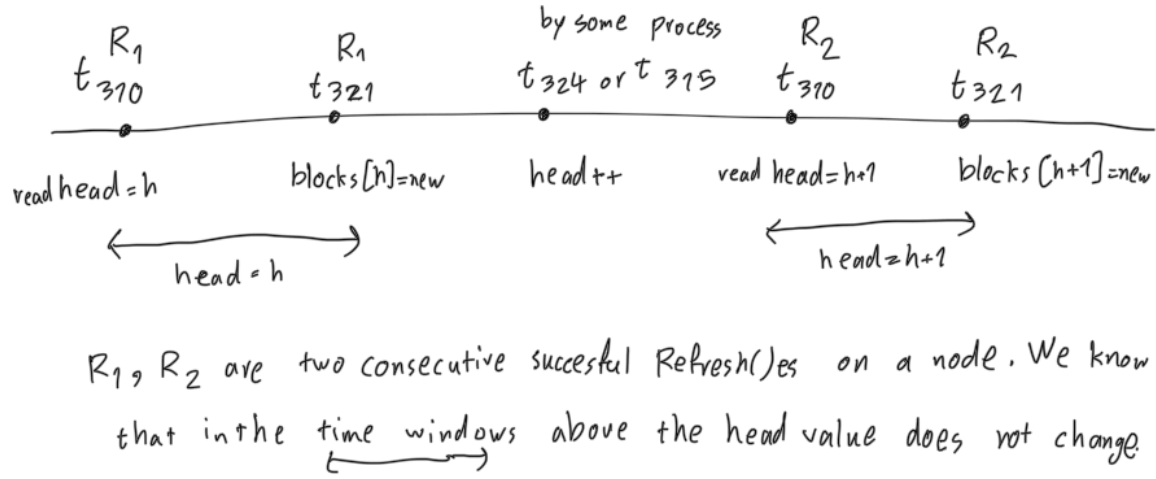 by some process
R1 R1 t324 or t 315 R2 R2
t310 t321 t310 t321
read head=h blocks[h]=new head++ read head=h+1 blocks[h+1]=new
head=h head=h+1
R1, R2 are two consecutive succesful Refresh()es on a node. We know
that in the time windows above the head value does not change.